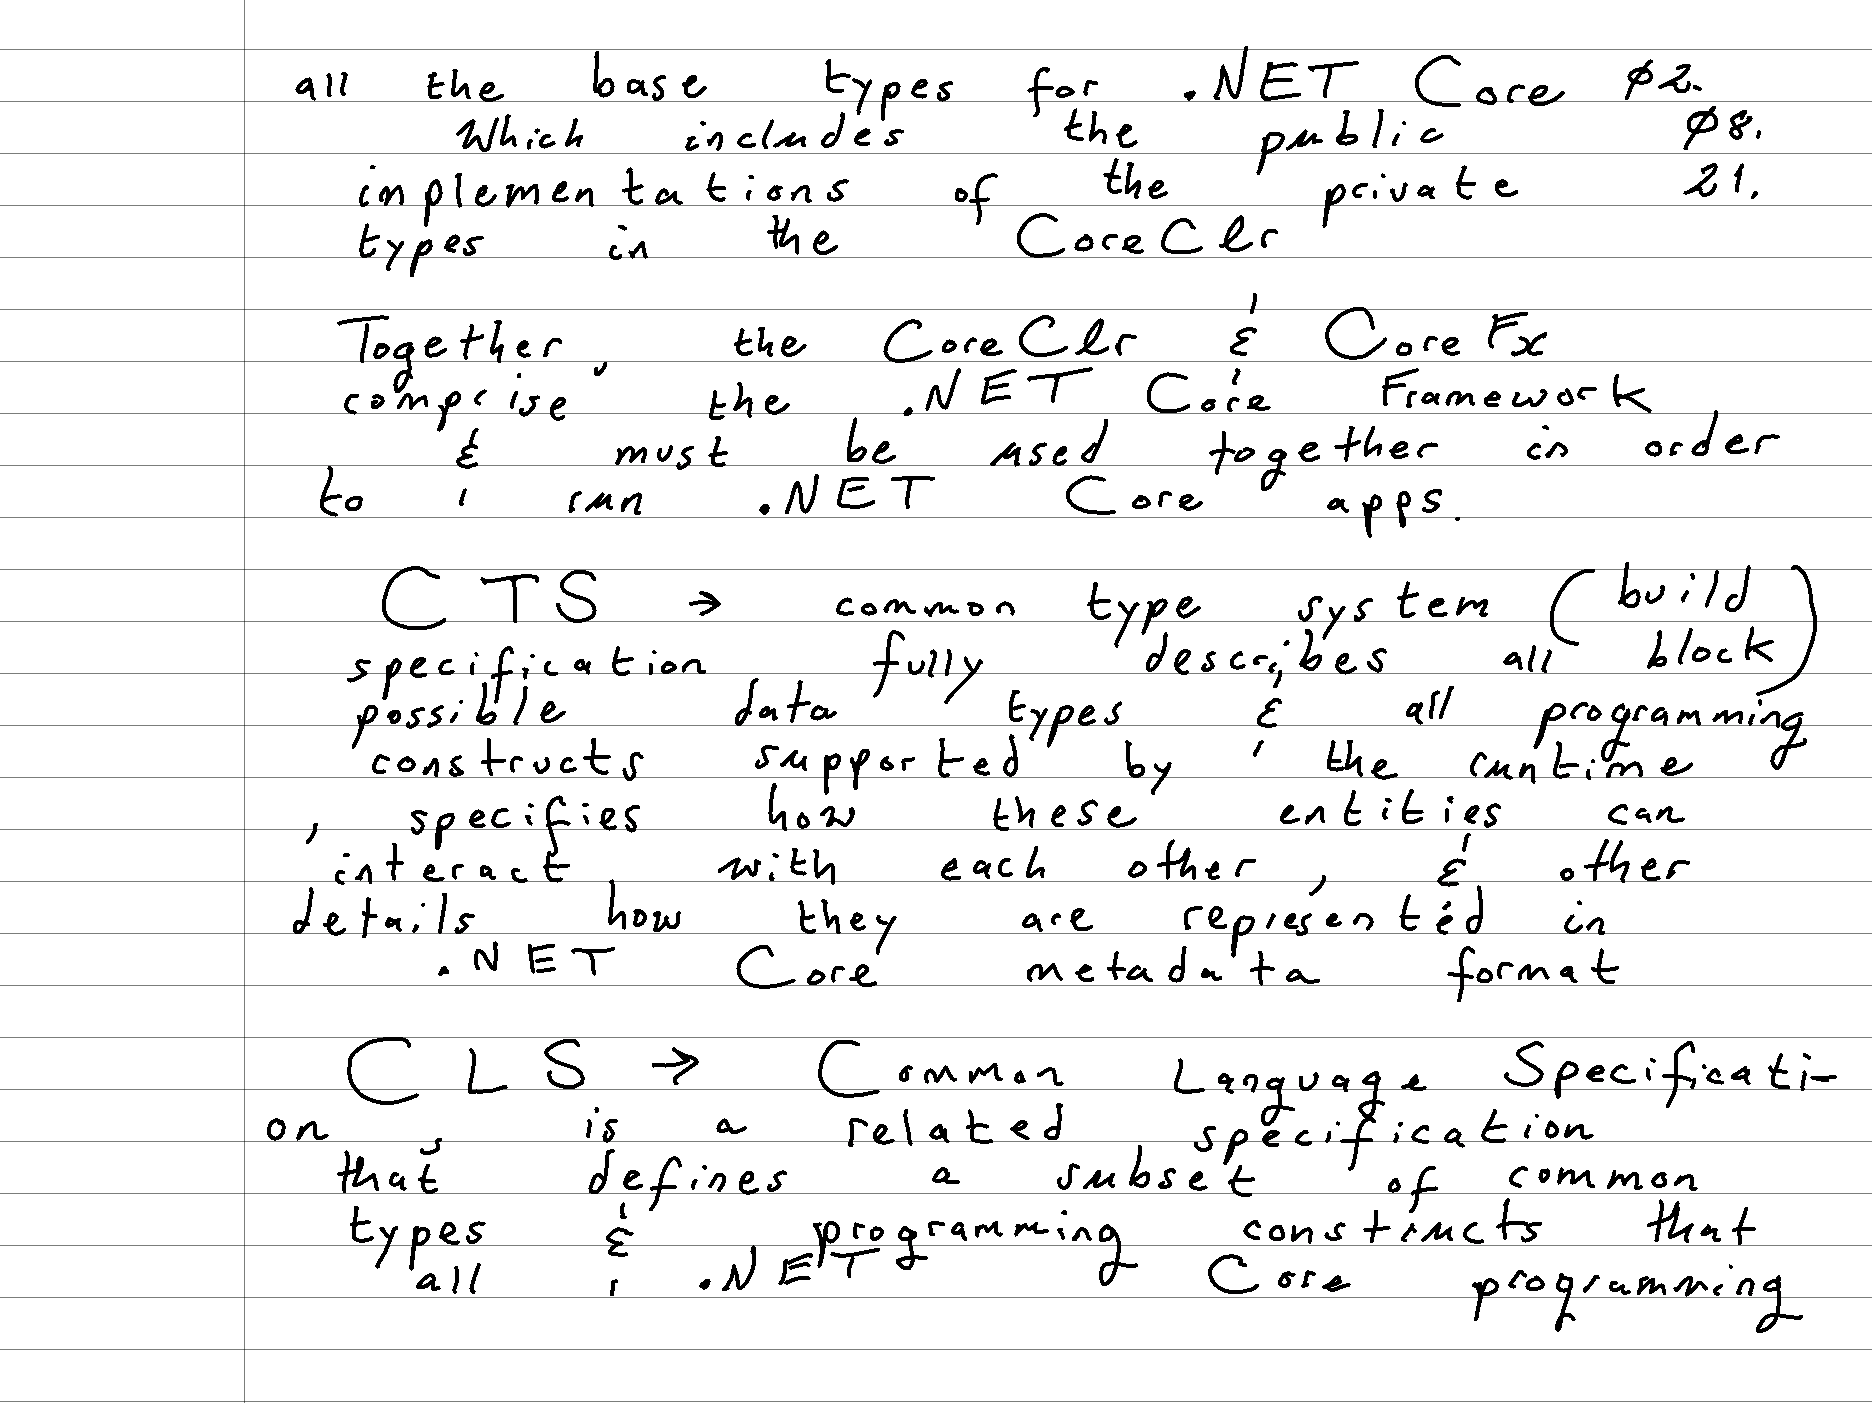 all the base types for .NET Core 02.
Which includes the public 08.
implementations of the private 21.
types in the CoreClr
Together, the CoreClr & CoreFx
comprise the .NET Core Framework
& must be used together in order
to run .NET Core apps.
CTS → common type system (build
specification fully describes all block)
possible data types & all programming
constructs supported by the runtime
, specifies how these entities can
interact with each other, & other
details how they are represented in
.NET Core metadata format
CLS → Common Language Specificati-
on, is a related specification
that defines a subset of common
types & programming constructs that
all .NET Core programming